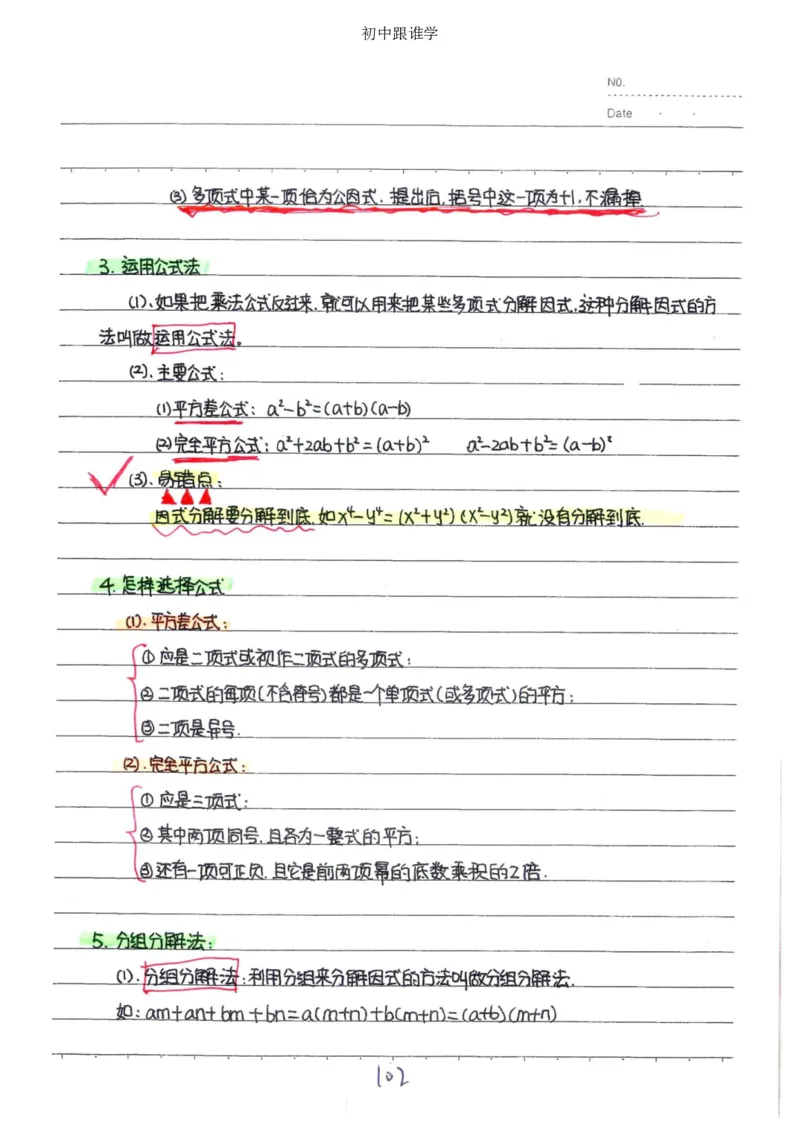 初中跟谁学
NO.
Date
(3) 多项式中某一项恰为公因式，提出后，括号中这一项为+1，不漏掉
3. 运用公式法
(1)、如果把乘法公式反过来，就可以用来把某些多项式分解因式，这种分解因式的方
法叫做运用公式法。
(2)、主要公式：
(1)平方差公式：a²-b²=(a+b)(a-b)
(2)完全平方公式：a²+2ab+b²=(a+b)² a²-2ab+b²=(a-b)²
(3)、易错点：
因式分解要分解到底，如x⁴-y⁴=(x²+y²)(x²-y²)就没有分解到底.
4. 怎样选择公式
(1)、平方差公式：
①应是二项式或视作二项式的多项式；
②二项式的每项(不含符号)都是一个单项式(或多项式)的平方；
③二项是异号.
(2)、完全平方公式：
①应是三项式；
②其中两项同号，且各为一整式的平方；
③还有一项可正负，且它是前两项幂的底数乘积的2倍.
5. 分组分解法：
(1)、分组分解法：利用分组来分解因式的方法叫做分组分解法.
如：am+an+bm+bn=a(m+n)+b(m+n)=(a+b)(m+n)
102